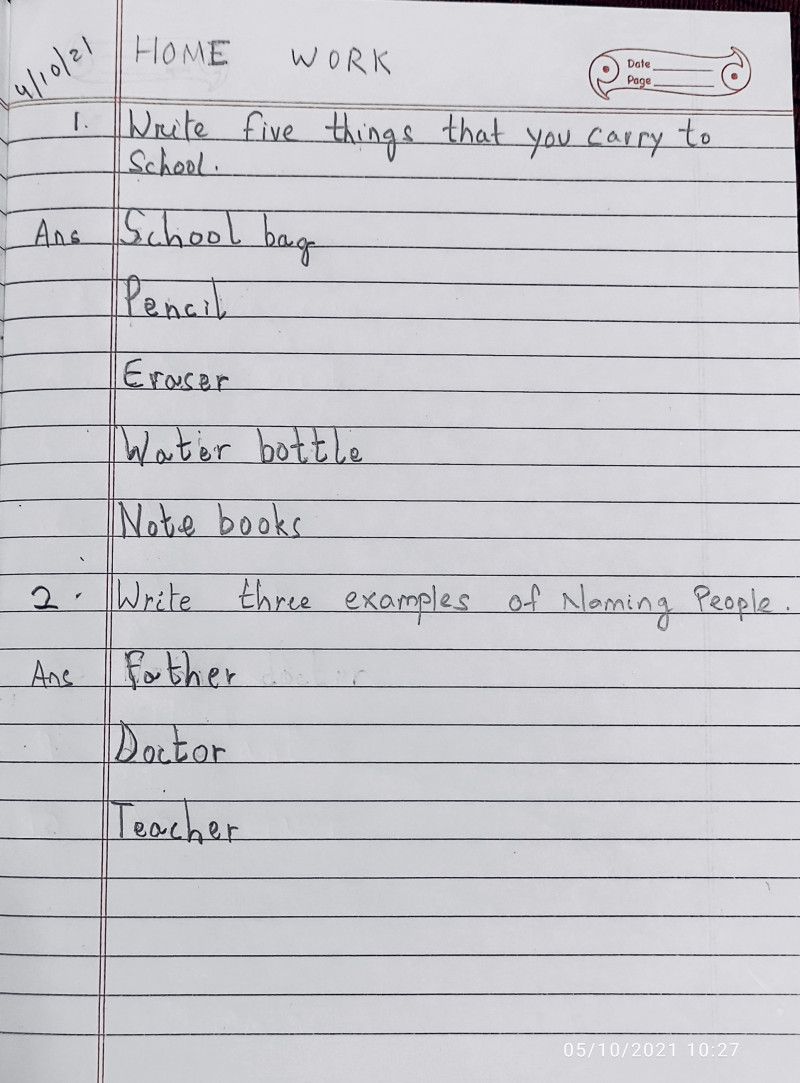 4/10/21
HOME WORK
Date
Page
1. Write five things that you carry to
School.
Ans School bag
Pencil
Eraser
Water bottle
Note books
2. Write three examples of Naming People.
Ans Father
Doctor
Teacher
05/10/2021 10:27